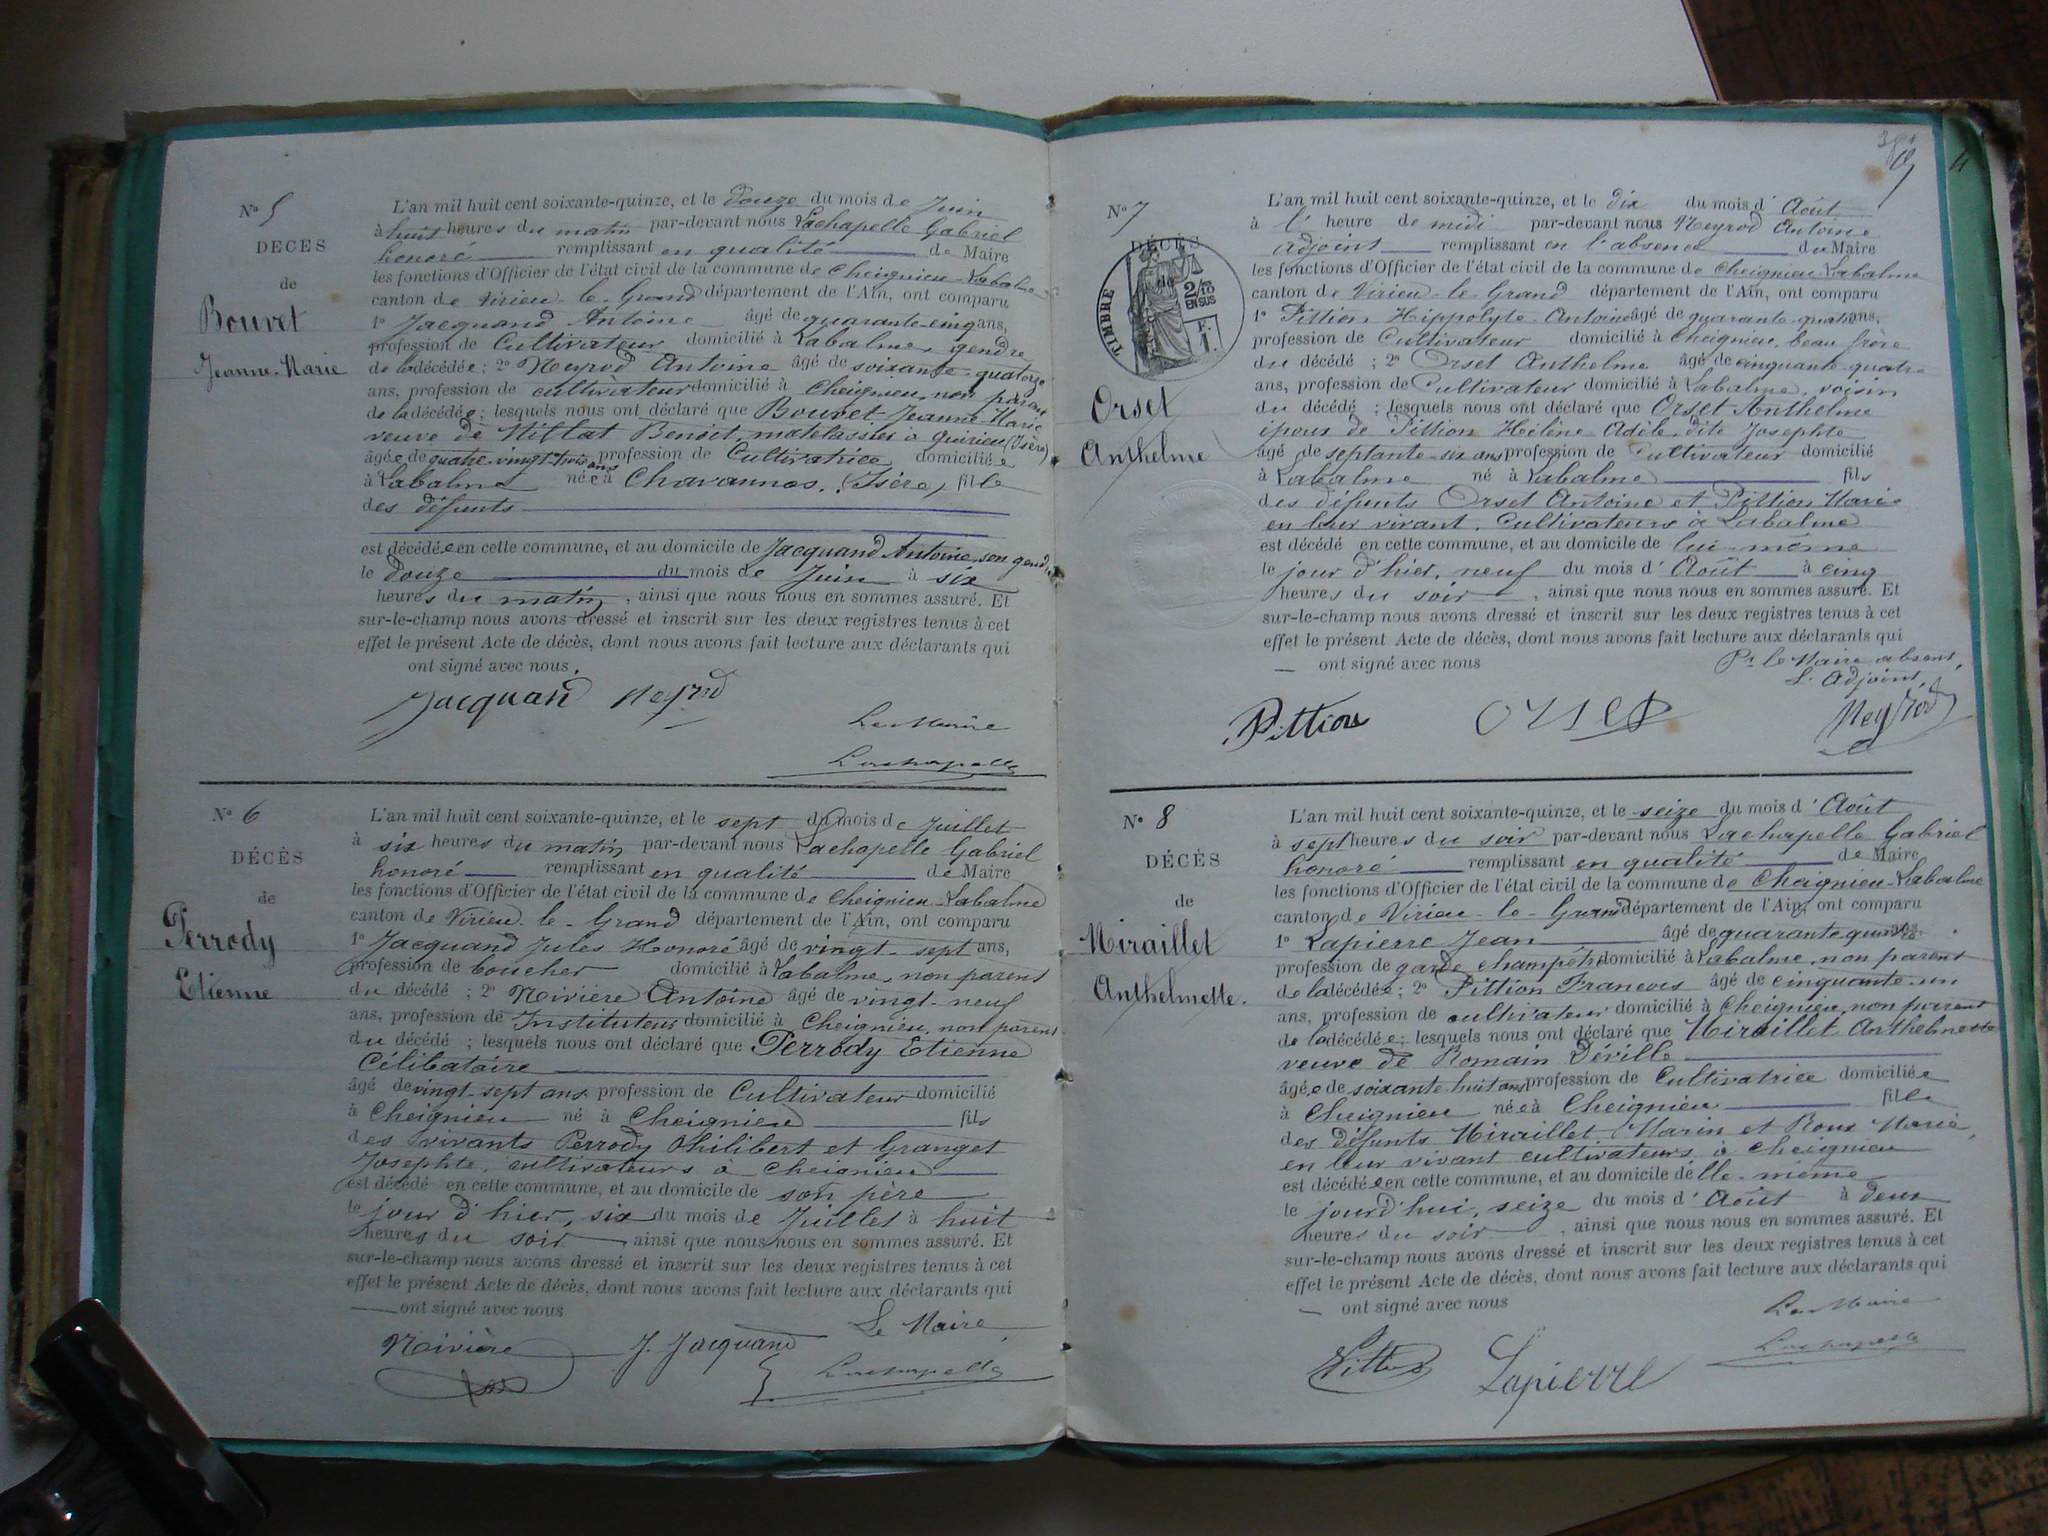 N° 5
DÉCÈS
de
Bouvet
Jeanne-Marie
L'an mil huit cent soixante-quinze, et le douze du mois de Juin
à huit heures du matin par-devant nous Lachapelle Gabriel
honoré remplissant en qualité de Maire
les fonctions d'Officier de l'état civil de la commune de Cheignieu-Labalme
canton de Virieu-le-Grand département de l'Ain, ont comparu
1° Jacquand Antoine âgé de quarante-cinq ans,
profession de Cultivateur domicilié à Labalme, gendre
de la décédée; 2° Neyrod Antoine âgé de soixante-quatorze
ans, profession de cultivateur domicilié à Cheignieu, non parent
de la décédée; lesquels nous ont déclaré que Bouvet Jeanne-Marie
veuve de Benoit, matelassier à Quirieu (Isère)
âgée de quatre-vingt-trois ans profession de Cultivatrice domiciliée
à Labalme née à Chavannes, (Isère) fille
des défunts
est décédée en cette commune, et au domicile de Jacquand Antoine, son gendre
le douze du mois de Juin à six
heures du matin, ainsi que nous nous en sommes assuré. Et
sur-le-champ nous avons dressé et inscrit sur les deux registres tenus à cet
effet le présent Acte de décès, dont nous avons fait lecture aux déclarants qui
ont signé avec nous.
Jacquand Neyrod
Le Maire
Lachapelle
N° 6
DÉCÈS
de
Perrody
Etienne
L'an mil huit cent soixante-quinze, et le sept du mois de Juillet
à six heures du matin par-devant nous Lachapelle Gabriel
honoré remplissant en qualité de Maire
les fonctions d'Officier de l'état civil de la commune de Cheignieu-Labalme
canton de Virieu-le-Grand département de l'Ain, ont comparu
1° Jacquand Jules Honoré âgé de vingt-sept ans,
profession de boucher domicilié à Labalme, non parent
du décédé; 2° Rivière Antoine âgé de vingt-neuf
ans, profession de Instituteur domicilié à Cheignieu, non parent
du décédé; lesquels nous ont déclaré que Perrody Etienne
Célibataire
âgé de vingt-sept ans profession de Cultivateur domicilié
à Cheignieu né à Cheignieu fils
des vivants Perrody Philibert et Granget
Josephte, cultivateurs à Cheignieu
est décédé en cette commune, et au domicile de son père
le jour d'hier, six du mois de Juillet à huit
heures du soir ainsi que nous nous en sommes assuré. Et
sur-le-champ nous avons dressé et inscrit sur les deux registres tenus à cet
effet le présent Acte de décès, dont nous avons fait lecture aux déclarants qui
ont signé avec nous
Le Maire,
Rivière J. Jacquand Lachapelle
9 4
N° 7
DÉCÈS
de
TIMBRE
2/10
EN SUS
Orset
Anthelme
L'an mil huit cent soixante-quinze, et le dix du mois d'Août
à l'heure de midi par-devant nous Neyrod Antoine
adjoint remplissant en l'absence du Maire
les fonctions d'Officier de l'état civil de la commune de Cheignieu-Labalme
canton de Virieu-le-Grand département de l'Ain, ont comparu
1° Pittion Hippolyte-Antoine âgé de quarante-quatre ans,
profession de Cultivateur domicilié à Cheignieu, beau-frère
du décédé; 2° Orset Anthelme âgé de cinquante-quatre
ans, profession de Cultivateur domicilié à Labalme, voisin
du décédé; lesquels nous ont déclaré que Orset Anthelme
époux de Pittion Hélène Adèle dite Josephte
âgé de septante-six ans profession de Cultivateur domicilié
à Labalme né à Labalme fils
des défunts Orset Antoine et Pittion Marie
en leur vivant, Cultivateurs à Labalme
est décédé en cette commune, et au domicile de lui-même
le jour d'hier, neuf du mois d'Août à cinq
heures du soir, ainsi que nous nous en sommes assuré. Et
sur-le-champ nous avons dressé et inscrit sur les deux registres tenus à cet
effet le présent Acte de décès, dont nous avons fait lecture aux déclarants qui
ont signé avec nous
Pr le Maire absent,
L'Adjoint,
Pittion Orset Neyrod
N° 8
DÉCÈS
de
Miraillet
Anthelmette.
L'an mil huit cent soixante-quinze, et le seize du mois d'Août
à sept heures du soir par-devant nous Lachapelle Gabriel
honoré remplissant en qualité de Maire
les fonctions d'Officier de l'état civil de la commune de Cheignieu-Labalme
canton de Virieu-le-Grand département de l'Ain, ont comparu
1° Lapierre Jean âgé de quarante
profession de garde champêtre domicilié à Labalme, non parent
de la décédée; 2° Pittion Francois âgé de cinquante-un
ans, profession de cultivateur domicilié à Cheignieu, non parent
de la décédée; lesquels nous ont déclaré que Miraillet Anthelmette
veuve de Romain Déville
âgée de soixante-huit ans profession de Cultivatrice domiciliée
à Cheignieu née à Cheignieu fille
des défunts Miraillet Marin et Roux Marie,
en leur vivant cultivateurs à Cheignieu
est décédée en cette commune, et au domicile d'elle-même
le jourd'hui, seize du mois d'Août à deux
heures du soir, ainsi que nous nous en sommes assuré. Et
sur-le-champ nous avons dressé et inscrit sur les deux registres tenus à cet
effet le présent Acte de décès, dont nous avons fait lecture aux déclarants qui
ont signé avec nous
Le Maire
Pittion Lapierre Lachapelle